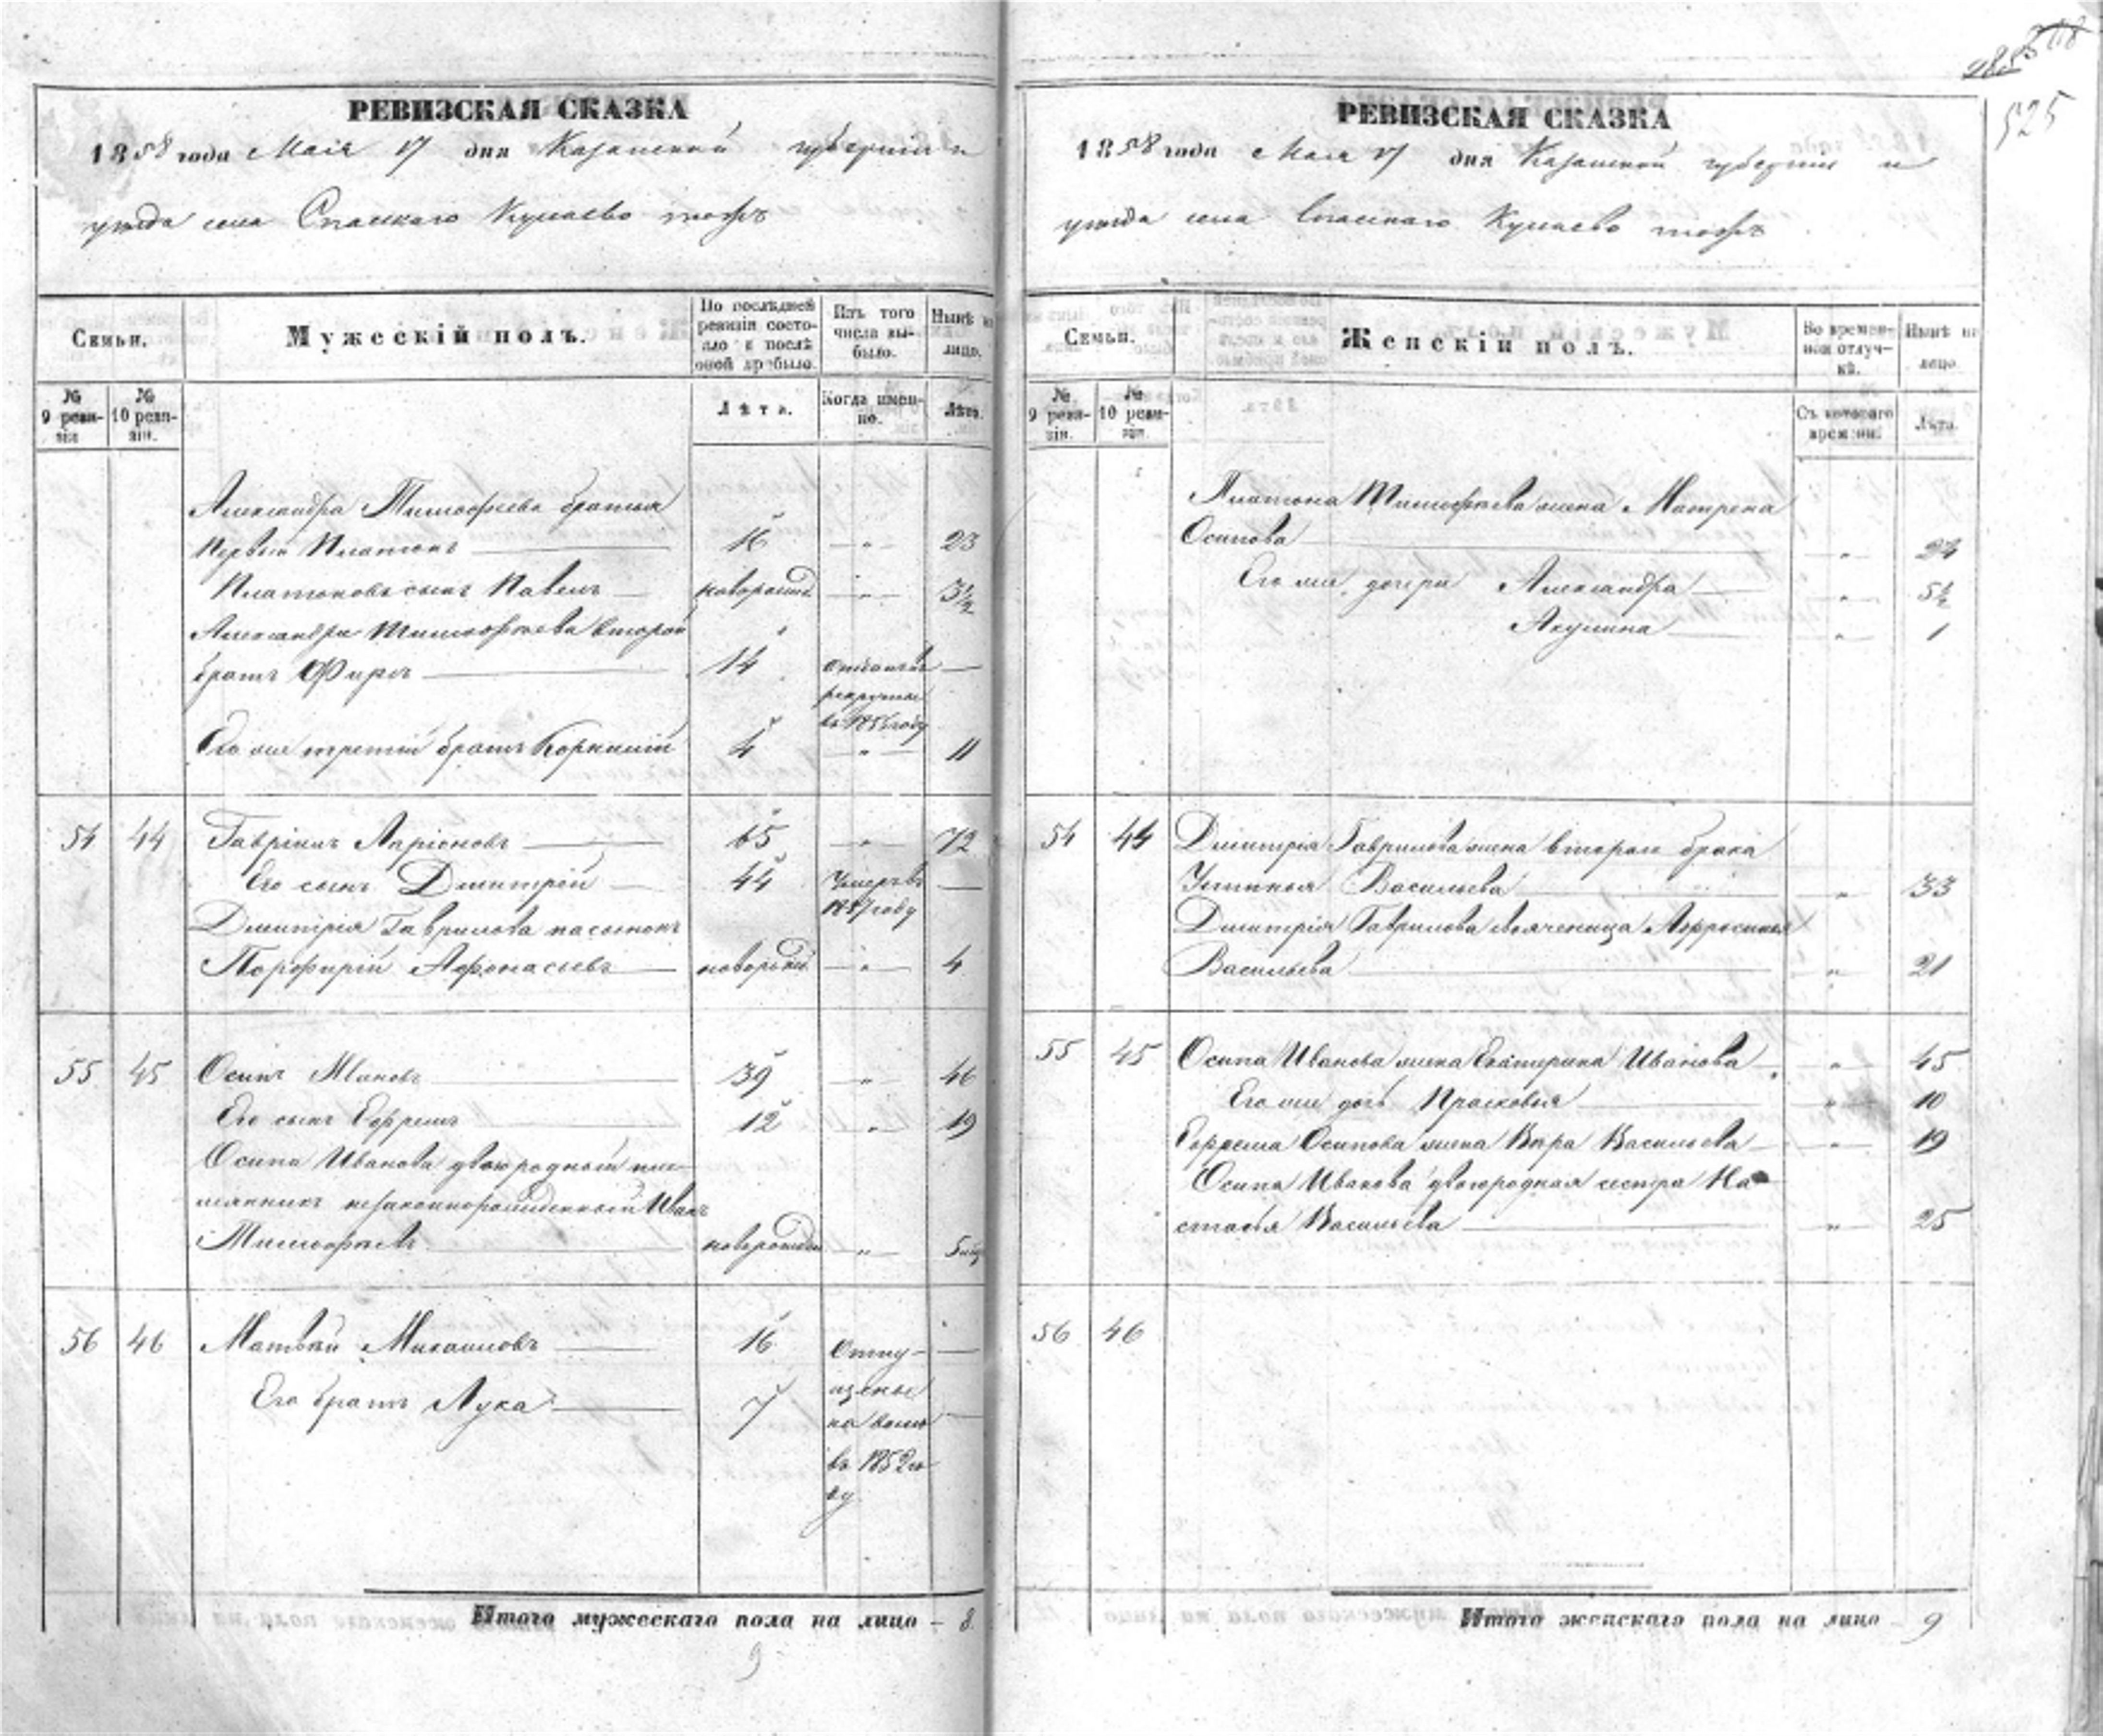 285 318
525
РЕВИЗСКАЯ СКАЗКА
1858 года Маія 17 дня Казанской губерніи и
уезда села Спаскаго Кунаево тожъ
Семьи.
Мужескій полъ.
По послѣдней ревизіи состояло и послѣ оной прибыло.
Изъ того числа выбыло.
Нынѣ на лицо.
№ 9 ревизіи
№ 10 ревизіи.
Лѣта.
Когда именно.
Лѣта.
Александра Тимофѣева братья
первый Платонъ 16 — " — 23
Платоновъ сынъ Павелъ новорожд — " — 3½
Александра Тимофѣева второй
братъ Фирсъ 14 Отданъ въ рекруты въ 185 году —
Его же третій братъ Корнилій 4 — " — 11
54 44 Гаврилъ Ларіоновъ 65 — " — 72
Его сынъ Дмитрій 44 Умеръ въ 1857 году —
Дмитрія Гаврилова пасынокъ
Порфирій Афонасьевъ новорожд — " — 4
55 45 Осипъ Ивановъ 39 — " — 46
Его сынъ Ефремъ 12 — " — 19
Осипа Иванова двоюродный пле-
мянникъ незаконнорожденный Иванъ
Тимофѣевъ новорожден — " —
56 46 Матвѣй Михаиловъ 16 Отпу- —
Его братъ Лука 7 щены на волю —
въ 1852 го
ду
Итого мужескаго пола на лицо - 8
9
РЕВИЗСКАЯ СКАЗКА
1858 года Маія 17 дня Казанской губерніи и
уезда села Спаскаго Кунаево тожъ
Семьи.
Женскій полъ.
Во временной отлучкѣ.
Нынѣ на лицо
№ 9 ревизіи.
№ 10 ревизіи
Съ котораго времени.
Лѣта.
Платона Тимофѣева жена Матрена
Осипова — " — 24
Его же дочери Александра — " — 5½
Акулина — " — 1
54 44 Дмитрія Гаврилова жена втораго брака
Устинья Васильева — " — 33
Дмитрія Гаврилова свояченица Афросинья
Васильева — " — 21
55 45 Осипа Иванова жена Екатерина Иванова — " — 45
Его же дочь Прасковья — " — 10
Ефрема Осипова жена Вѣра Васильева — " — 19
Осипа Иванова двоюродная сестра На
стасья Васильева — " — 25
56 46
Итого женскаго пола на лицо 9